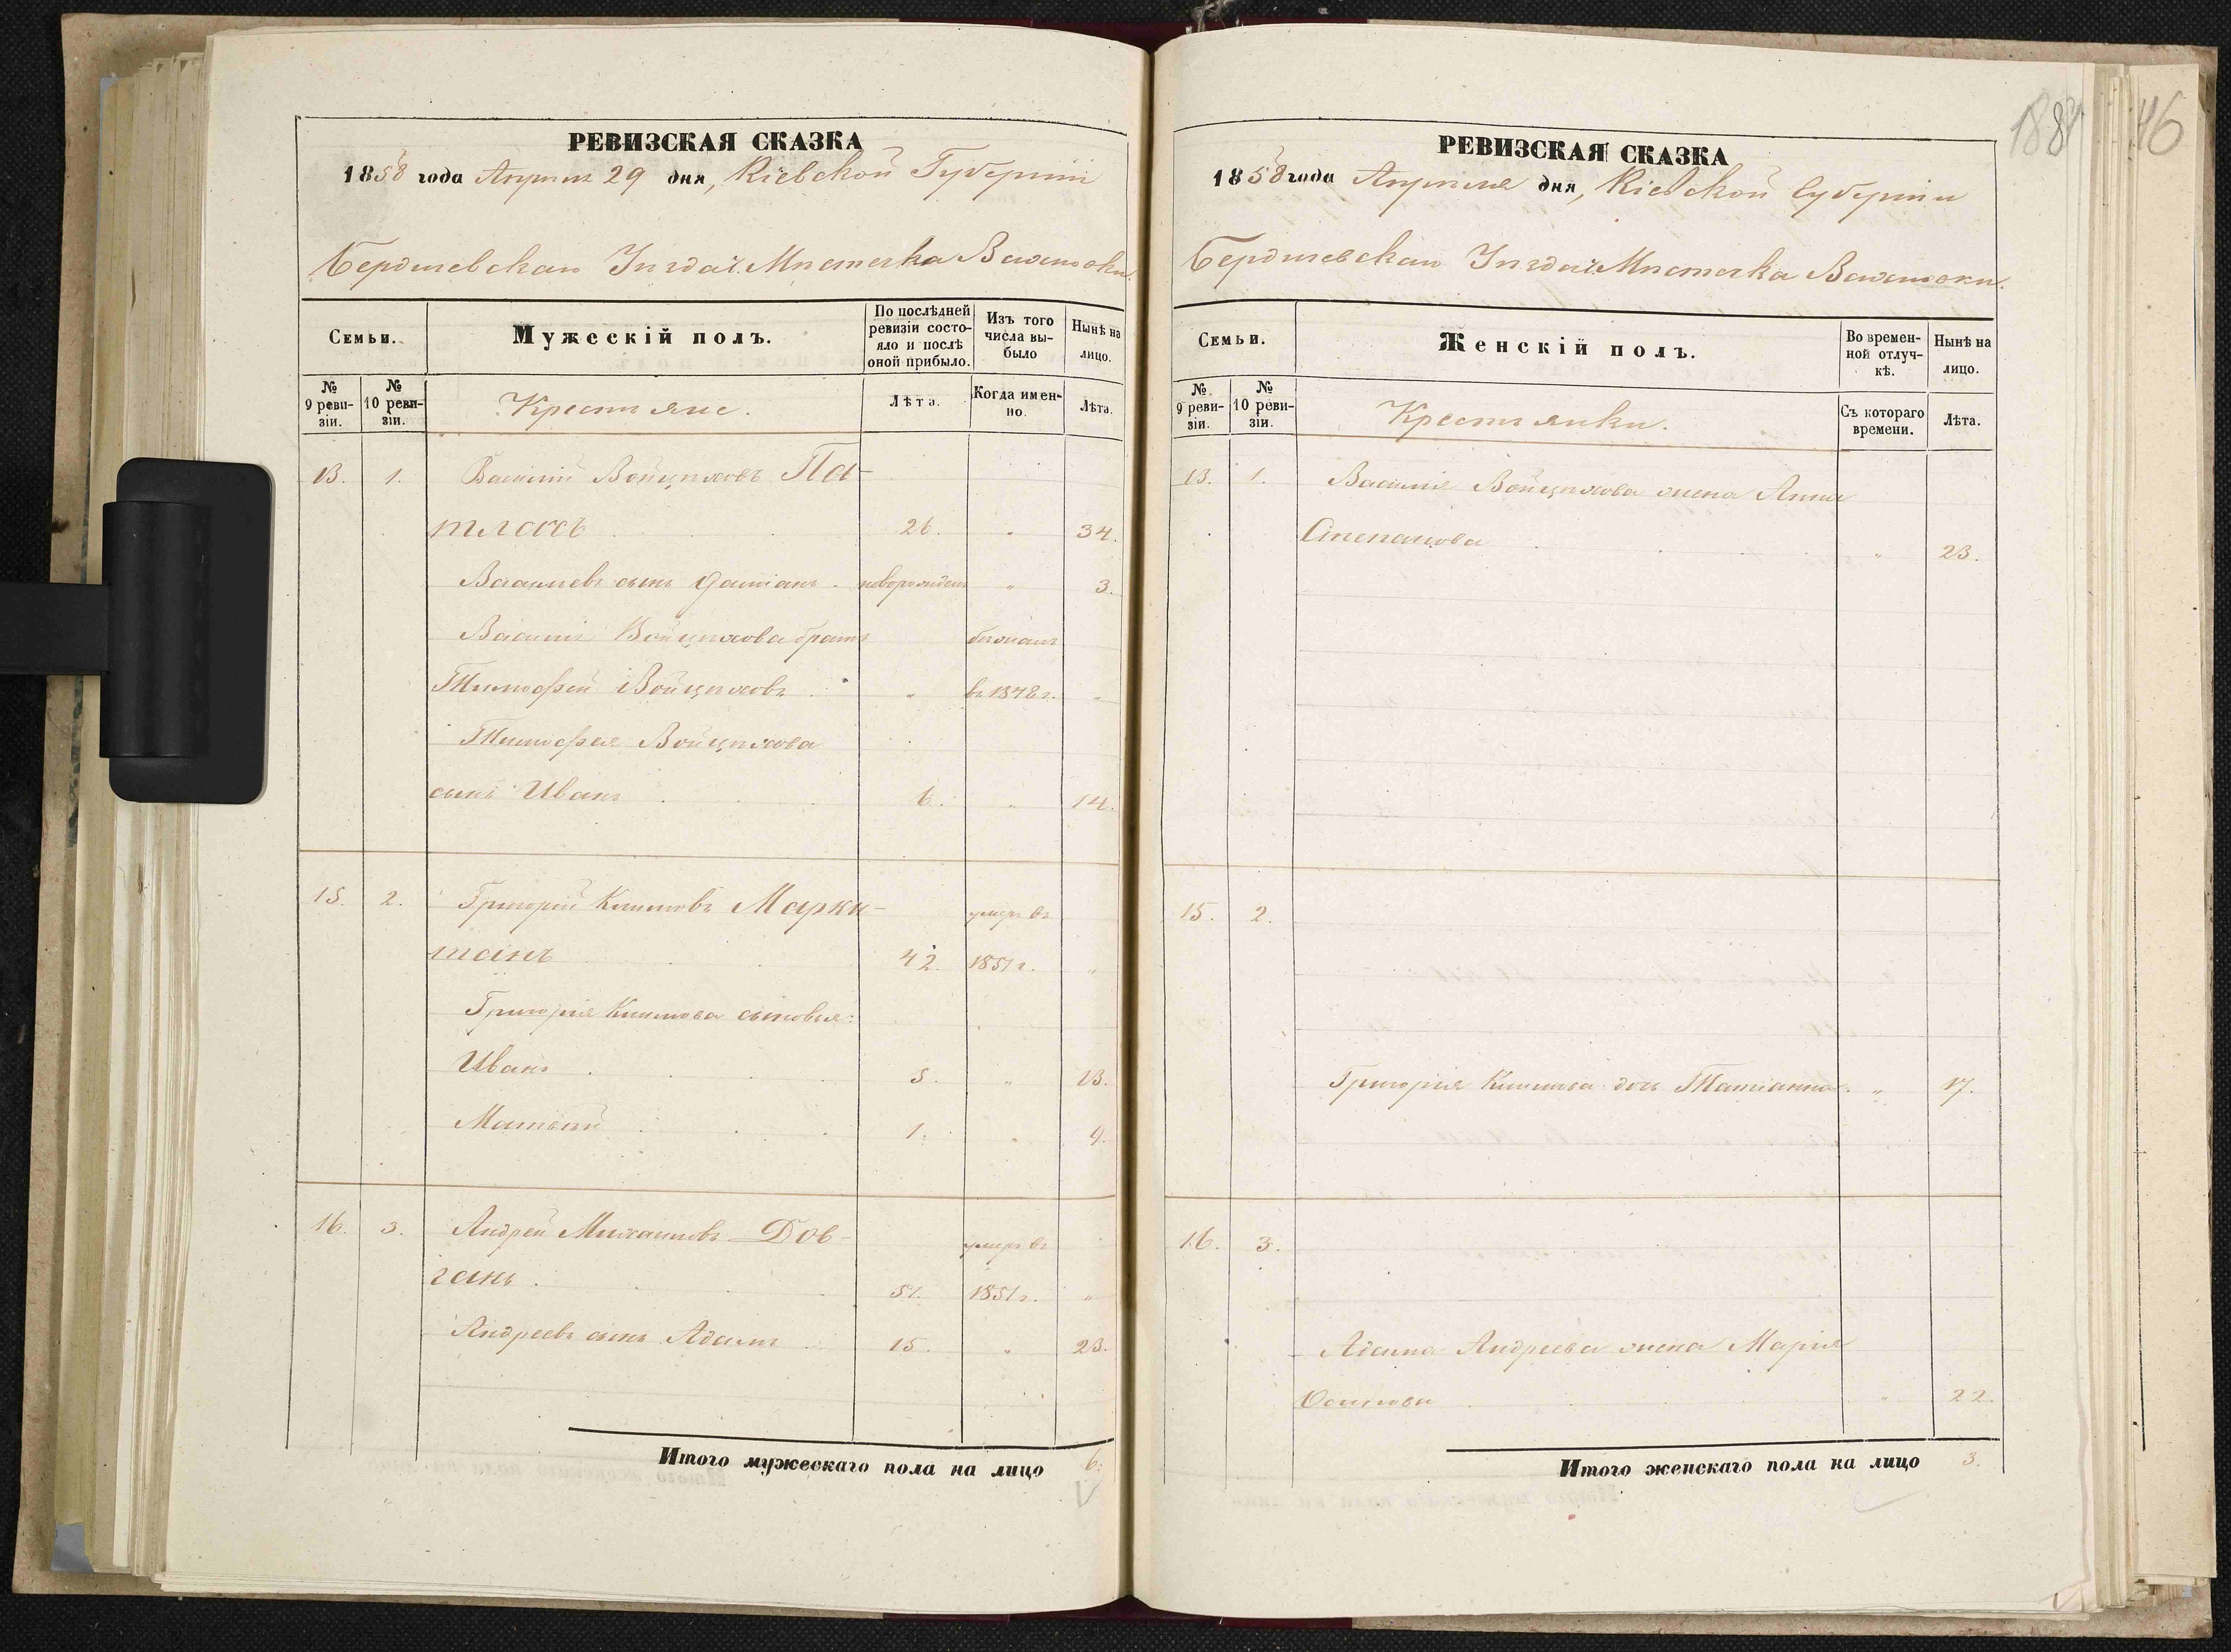 РЕВИЗСКАЯ СКАЗКА
1858 года Апрѣля 29 дня, Кіевской Губерніи
Бердичевскаго Уѣзда Мѣстечка
Семьи.
Мужескій полъ.
По послѣдней ревизіи состояло и послѣ оной прибыло.
Изъ того числа выбыло
Нынѣ на лицо.
№ 9 ревизіи.
№ 10 ревизіи.
Крестьяне.
Лѣта.
Когда именно.
Лѣта.
13. 1. Василій Войцѣховъ Па-
тлахъ 26. " 34.
Васильевъ сынъ Даміанъ новорожден " 3.
Василія Войцѣхова братъ бѣжалъ
Тимофей Войцѣховъ " въ 1848 г. "
Тимофея Войцѣхова
сынъ Иванъ 6. " 14.
15. 2. Григорій Климовъ Марки- умеръ въ
танъ 42. 1851 г. "
Григорія Климова сыновья:
Иванъ 5. " 13.
Матвѣй 1. " 9.
16. 3. Андрей Михайловъ Дов- умеръ въ
гань 51. 1851 г. "
Андреевъ сынъ Адамъ 15. " 23.
Итого мужескаго пола на лицо 6.
188
46
РЕВИЗСКАЯ СКАЗКА
1858 года Апрѣля дня, Кіевской Губерніи
Бердичевскаго Уѣзда Мѣстечка
Семьи.
Женскій полъ.
Во временной отлучкѣ.
Нынѣ на лицо.
№ 9 ревизіи.
№ 10 ревизіи.
Крестьянки.
Съ котораго времени.
Лѣта.
13. 1. Василія Войцѣхова жена Анна
Степанова " 23.
15. 2.
Григорія Климова дочь Татіанна " 17.
16. 3.
Адама Андреева жена Марія
Осипова " 22.
Итого женскаго пола на лицо 3.